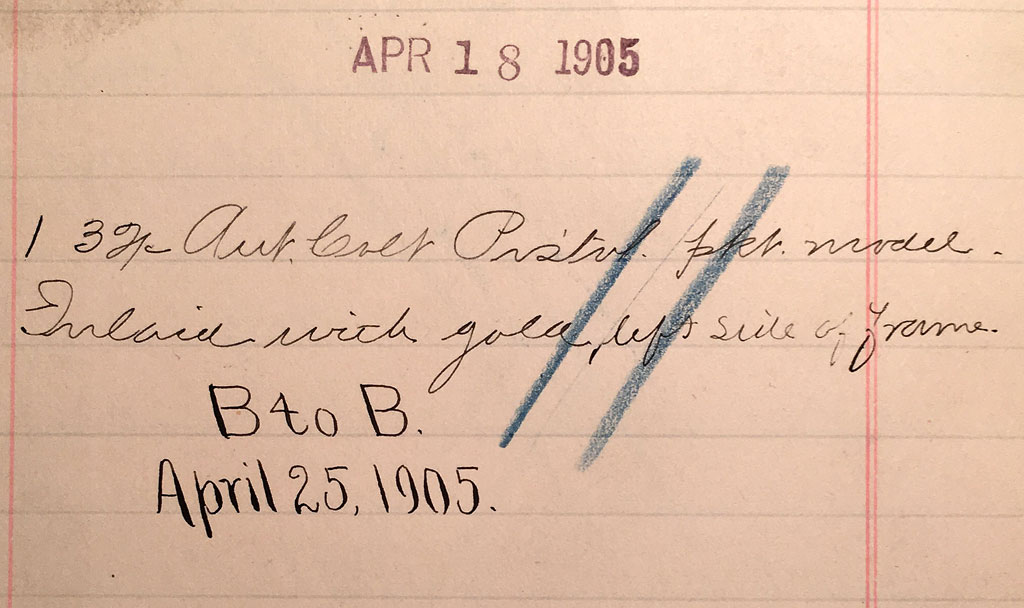 APR 18 1905
1 32/c Aut. Colt Pistol. pkt. model.
Inlaid with gold, left side of frame.
B to B.
April 25, 1905.